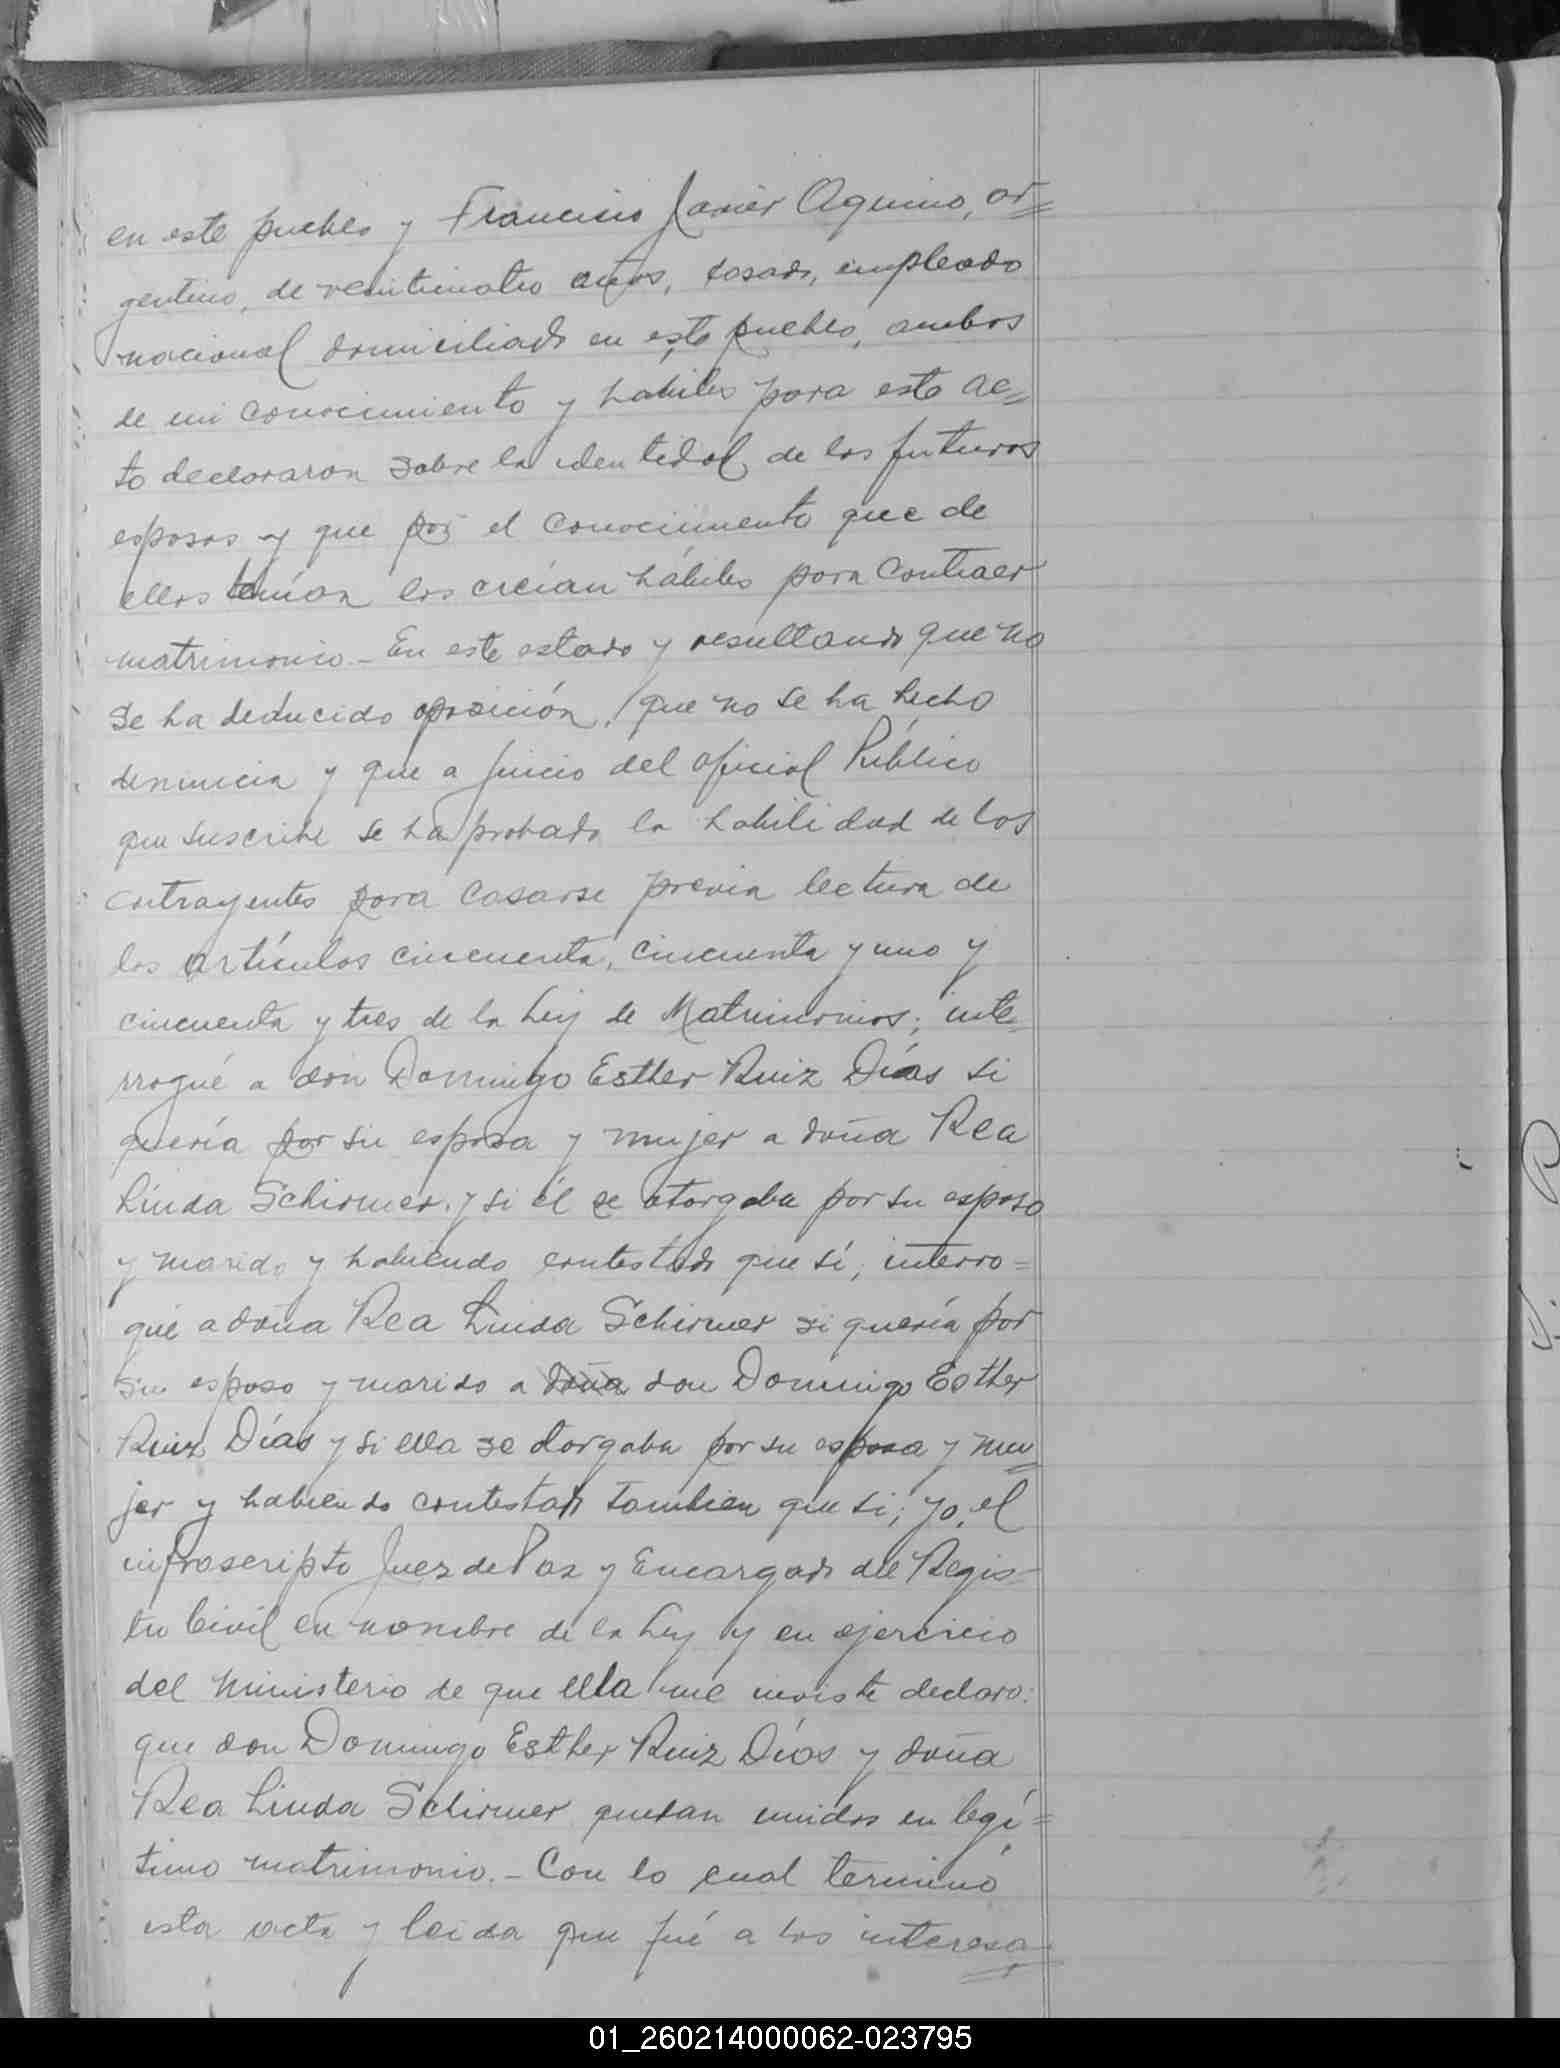 en este pueblo y Francisco Javier Aquino, ar=
gentino, de veinticuatro años, casado, empleado
nacional domiciliado en este pueblo, ambos
de mi conocimiento y hábiles para este ac=
to declararon sobre la identidad de los futuros
esposos y que por el conocimiento que de
ellos tenían los creían hábiles para contraer
matrimonio.- En este estado y resultando que no
se ha deducido oposición, que no se ha hecho
denuncia y que a juicio del oficial Público
que suscribe se ha probado la habilidad de los
contrayentes para casarse previa lectura de
los artículos cincuenta, cincuenta y uno y
cincuenta y tres de la Ley de Matrimonios; inte=
rrogué a don Domingo Esther Ruiz Días si
quería por su esposa y mujer a doña Rea
Linda Schirmer y si él se otorgaba por su esposo
y marido y habiendo contestado que sí, interro=
gué a doña Rea Linda Schirmer si quería por
su esposo y marido a doña don Domingo Esther
Ruiz Días y si ella se otorgaba por su esposa y mu=
jer y habiendo contestado tambien que si; yo, el
infrascripto Juez de Paz y Encargado del Regis-
tro Civil en nombre de la Ley y en ejercicio
del ministerio de que ella me inviste declaro:
que don Domingo Esther Ruiz Días y doña
Rea Linda Schirmer quedan unidos en legí=
timo matrimonio.- Con lo cual terminó
esta acta y leida que fué a los interesa=
01_260214000062-023795